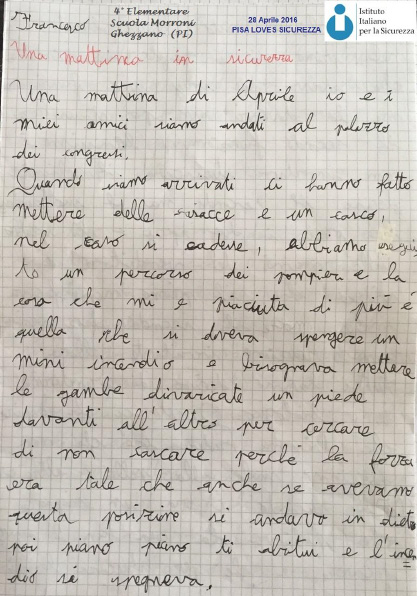 Francesco
4° Elementare
Scuola Morroni
Ghezzano (PI)
28 Aprile 2016
PISA LOVES SICUREZZA
Istituto
Italiano
per la Sicurezza
Una mattina in sicurezza
Una mattina di Aprile io e i
miei amici siamo andati al palazzo
dei congressi.
Quando siamo arrivati ci hanno fatto
mettere delle giacce e un casco,
nel caso si cadeva, abbiamo eseguii
to un percorso dei pompieri e la
cosa che mi e piaciuta di più è
quella che si doveva spengere un
mini incendio e bisognava mettere
le gambe divaricate un piede
davanti all'altro per cercare
di non cascare perché la forza
era tale che anche se avevamo
questa posizione si andava in dieto
poi piano piano ti abitui e l'incen
dio si spegneva.